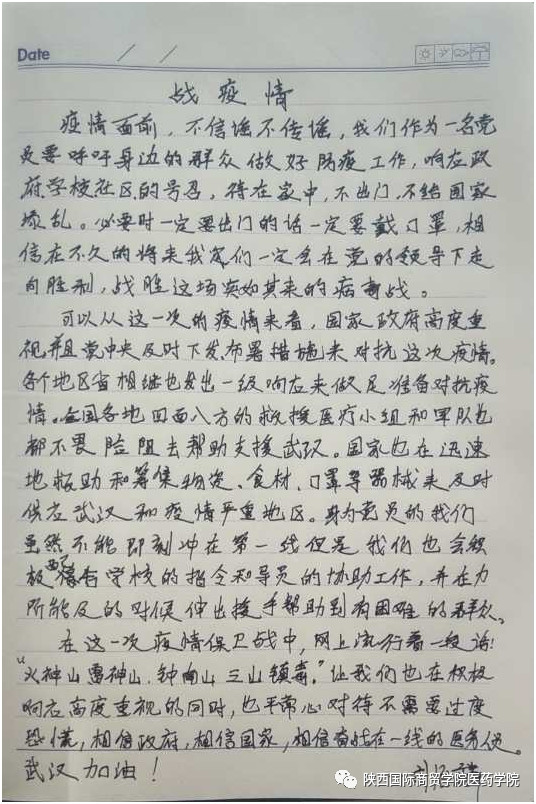 Date / /
战疫情
疫情面前，不信谣不传谣，我们作为一名党
员要呼吁身边的群众做好防疫工作，响应政
府学校社区的号召，待在家中，不出门，不给国家
添乱。必要时一定要出门的话一定要戴口罩，相
信在不久的将来我们一定会在党的领导下走
向胜利，战胜这场突如其来的病毒战。
可以从这一次的疫情来看，国家政府高度重
视并且党中央及时下发布署措施来对抗这次疫情。
各个地区省相继也发出一级响应来做足准备对抗疫
情。全国各地四面八方的救援医疗小组和军队也
都不畏险阻去帮助支援武汉。国家也在迅速
地板助和筹集物资、食材、口罩等器械来及时
供应武汉和疫情严重地区。身为党员的我们
虽然不能即刻冲在第一线但是我们也会积
极配合学校的指令和导员的协助工作，并在力
所能及的时候伸出援手帮助到有困难的群众。
在这一次疫情保卫战中，网上流行着一段话：
“火神山雷神山，钟南山三山镇毒。”让我们也在积极
响应高度重视的同时，也平常心对待不需要过度
恐慌，相信政府，相信国家，相信奋战在一线的医务人员。
武汉加油！
陕西国际商贸学院医药学院